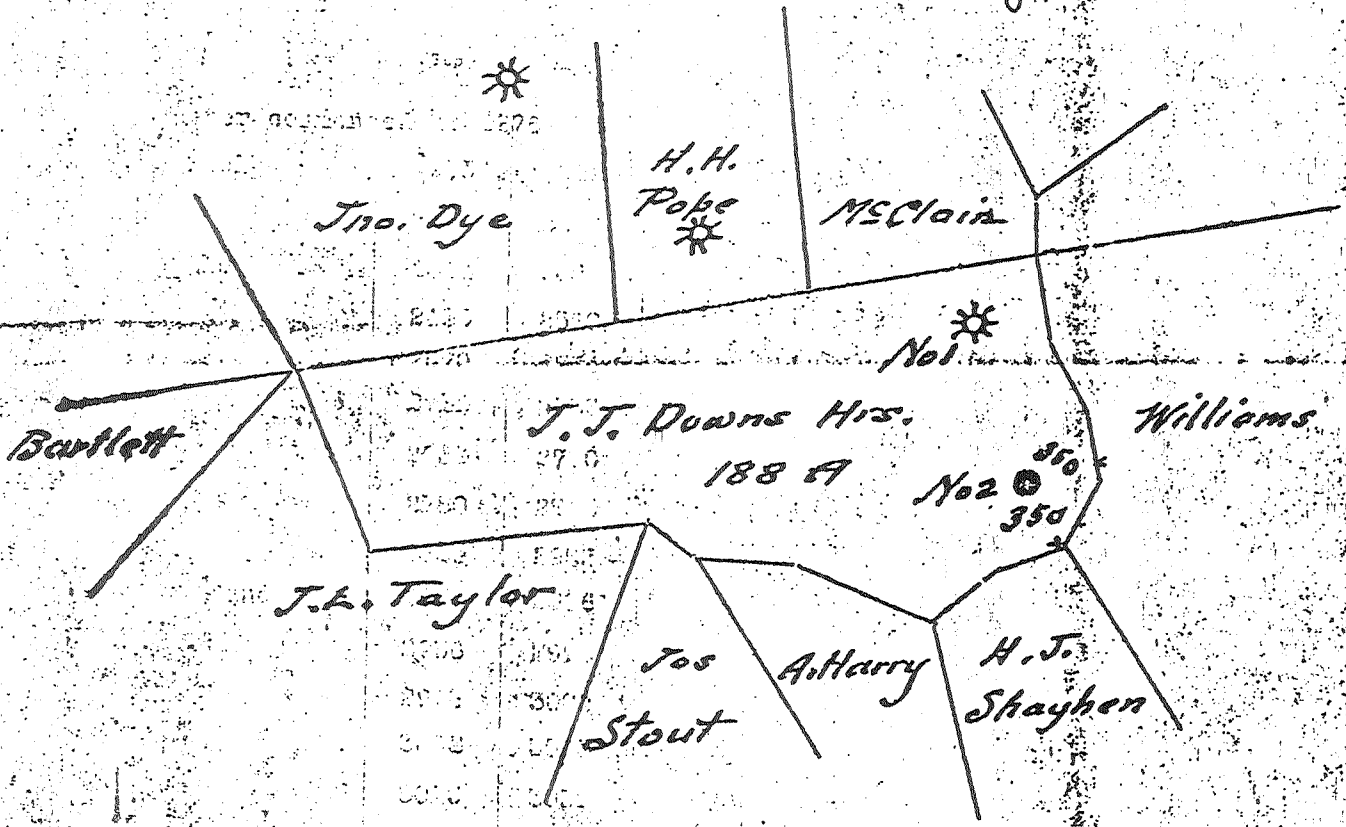 Jno. Dye
H.H.
Pope
McClain
No1
Bartlett
J.J. Downs Hrs.
188 A
Williams
No2
350
350
J.L. Taylor
Jos
Stout
A. Harry
H.J.
Shayhen